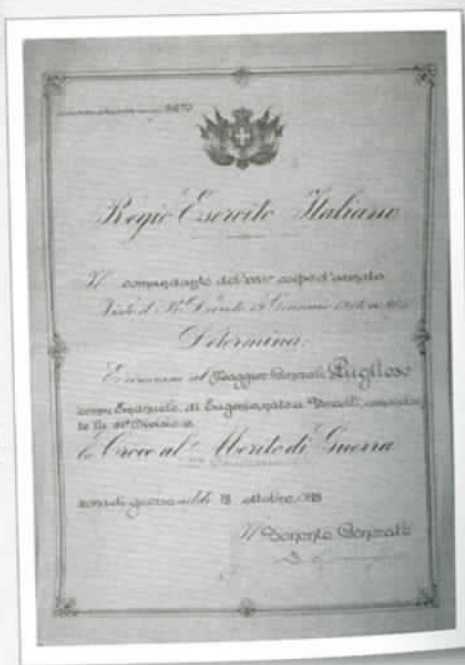 Regio Esercito Italiano
Il comandante del corpo d'armata
Determina:
È concessa al Maggior Generale Pugliese
comm. Emanuele, di Eugenio, nato a Vercelli, comandan
te la Divisione
la Croce al Merito di Guerra
zona di guerra addì 18 ottobre 1918
Il Tenente Generale